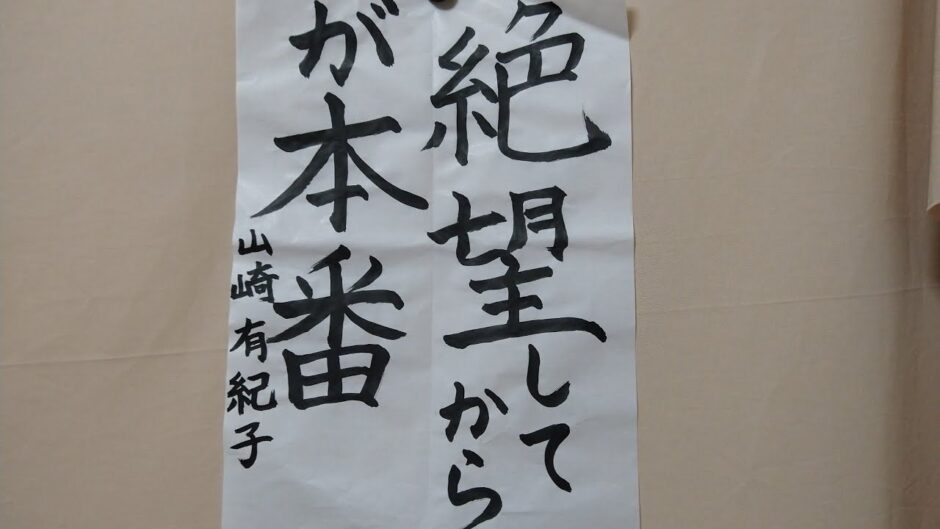 絶望してから
が本番
山崎有紀子